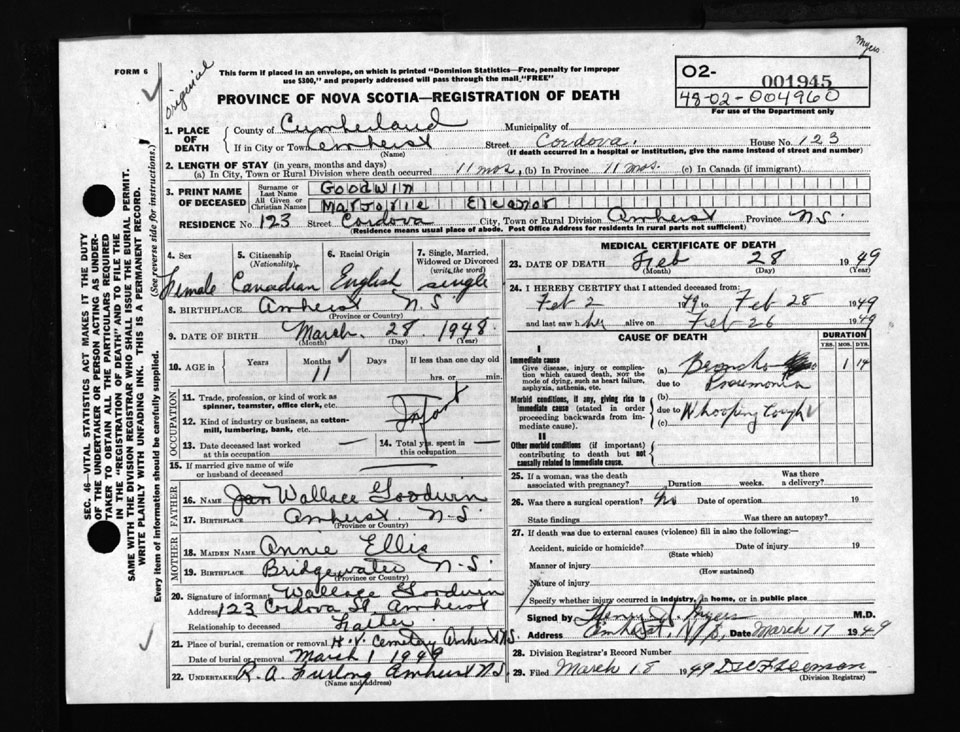 Myers
FORM 6
original
This form if placed in an envelope, on which is printed "Dominion Statistics—Free, penalty for improper
use $300," and properly addressed will pass through the mail "FREE"
PROVINCE OF NOVA SCOTIA—REGISTRATION OF DEATH
02- 001945
48-02-004960
For use of the Department only
SEC. 46—VITAL STATISTICS ACT MAKES IT THE DUTY
OF THE UNDERTAKER OR PERSON ACTING AS UNDER-
TAKER TO OBTAIN ALL THE PARTICULARS REQUIRED
IN THE "REGISTRATION OF DEATH" AND TO FILE THE
SAME WITH THE DIVISION REGISTRAR WHO SHALL ISSUE THE BURIAL PERMIT.
WRITE PLAINLY WITH UNFADING INK. THIS IS A PERMANENT RECORD.
Every item of information should be carefully supplied. (See reverse side for instructions.)
1. PLACE OF DEATH
County of Cumberland Municipality of
If in City or Town Amherst Street Cordova. House No. 123
(Name) (If death occurred in a hospital or institution, give the name instead of street and number)
2. LENGTH OF STAY (in years, months and days)
(a) In City, Town or Rural Division where death occurred 11 mos, (b) In Province 11 mos. (c) In Canada (if immigrant)
3. PRINT NAME OF DECEASED
Surname or Last Name Goodwin
All Given or Christian Names Marjorie Eleanor
RESIDENCE No. 123 Street Cordova City, Town or Rural Division Amherst Province N.S.
(Residence means usual place of abode. Post Office Address for residents in rural parts not sufficient)
4. Sex
Female
5. Citizenship (Nationality)
Canadian
6. Racial Origin
English
7. Single, Married, Widowed or Divorced (write the word)
single
8. BIRTHPLACE Amherst N.S
(Province or Country)
9. DATE OF BIRTH March 28 1948
(Month) (Day) (Year)
10. AGE in
Years Months ✓ Days If less than one day old
11 hrs. or min.
OCCUPATION
11. Trade, profession, or kind of work as spinner, teamster, office clerk, etc.
Infant
12. Kind of industry or business, as cotton-mill, lumbering, bank, etc.
13. Date deceased last worked at this occupation — 14. Total yrs. spent in this occupation —
15. If married give name of wife or husband of deceased —
FATHER
16. NAME Wallace Goodwin
17. BIRTHPLACE Amherst. N-S.
(Province or Country)
MOTHER
18. MAIDEN NAME Annie Ellis
19. BIRTHPLACE Bridgewater N-S.
(Province or Country)
20. Signature of informant Wallace Goodwin
Address 123 Cordova St. Amherst
Relationship to deceased Father
21. Place of burial, cremation or removal Cemetery Amherst N.S.
Date of burial or removal March 1 1949
22. UNDERTAKER R. A. Furlong Amherst N.S.
(Name and address)
MEDICAL CERTIFICATE OF DEATH
23. DATE OF DEATH Feb 28 1949
(Month) (Day) (Year)
24. I HEREBY CERTIFY that I attended deceased from:
Feb 2 1949 to Feb 28 1949
and last saw her alive on Feb 26 1949
CAUSE OF DEATH
DURATION
YRS. MOS. DYS.
I
Immediate cause
Give disease, injury or complication which caused death, not the mode of dying, such as heart failure, asphyxia, asthenia, etc.
(a) Broncho 1 14
due to Pneumonia
Morbid conditions, if any, giving rise to immediate cause (stated in order proceeding backwards from immediate cause).
(b)
due to Whooping Cough ✓
(c)
II
Other morbid conditions (if important) contributing to death but not causally related to immediate cause.
25. If a woman, was the death associated with pregnancy? Duration weeks. Was there a delivery?
26. Was there a surgical operation? No Date of operation 19
State findings Was there an autopsy?
27. If death was due to external causes (violence) fill in also the following:—
Accident, suicide or homicide? Date of injury 19
(State which)
Manner of injury
(How sustained)
Nature of injury
Specify whether injury occurred in industry, in home, or in public place
Signed by Myers M.D.
Address Amherst, N.S. Date March 17 1949
28. Division Registrar's Record Number
29. Filed March 18 1949
(Division Registrar)